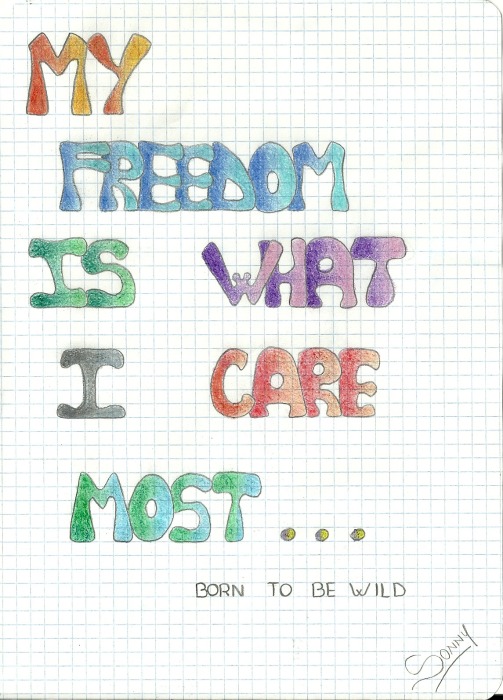 MY
FREEDOM
IS WHAT
I CARE
MOST...
BORN TO BE WILD
SONNY